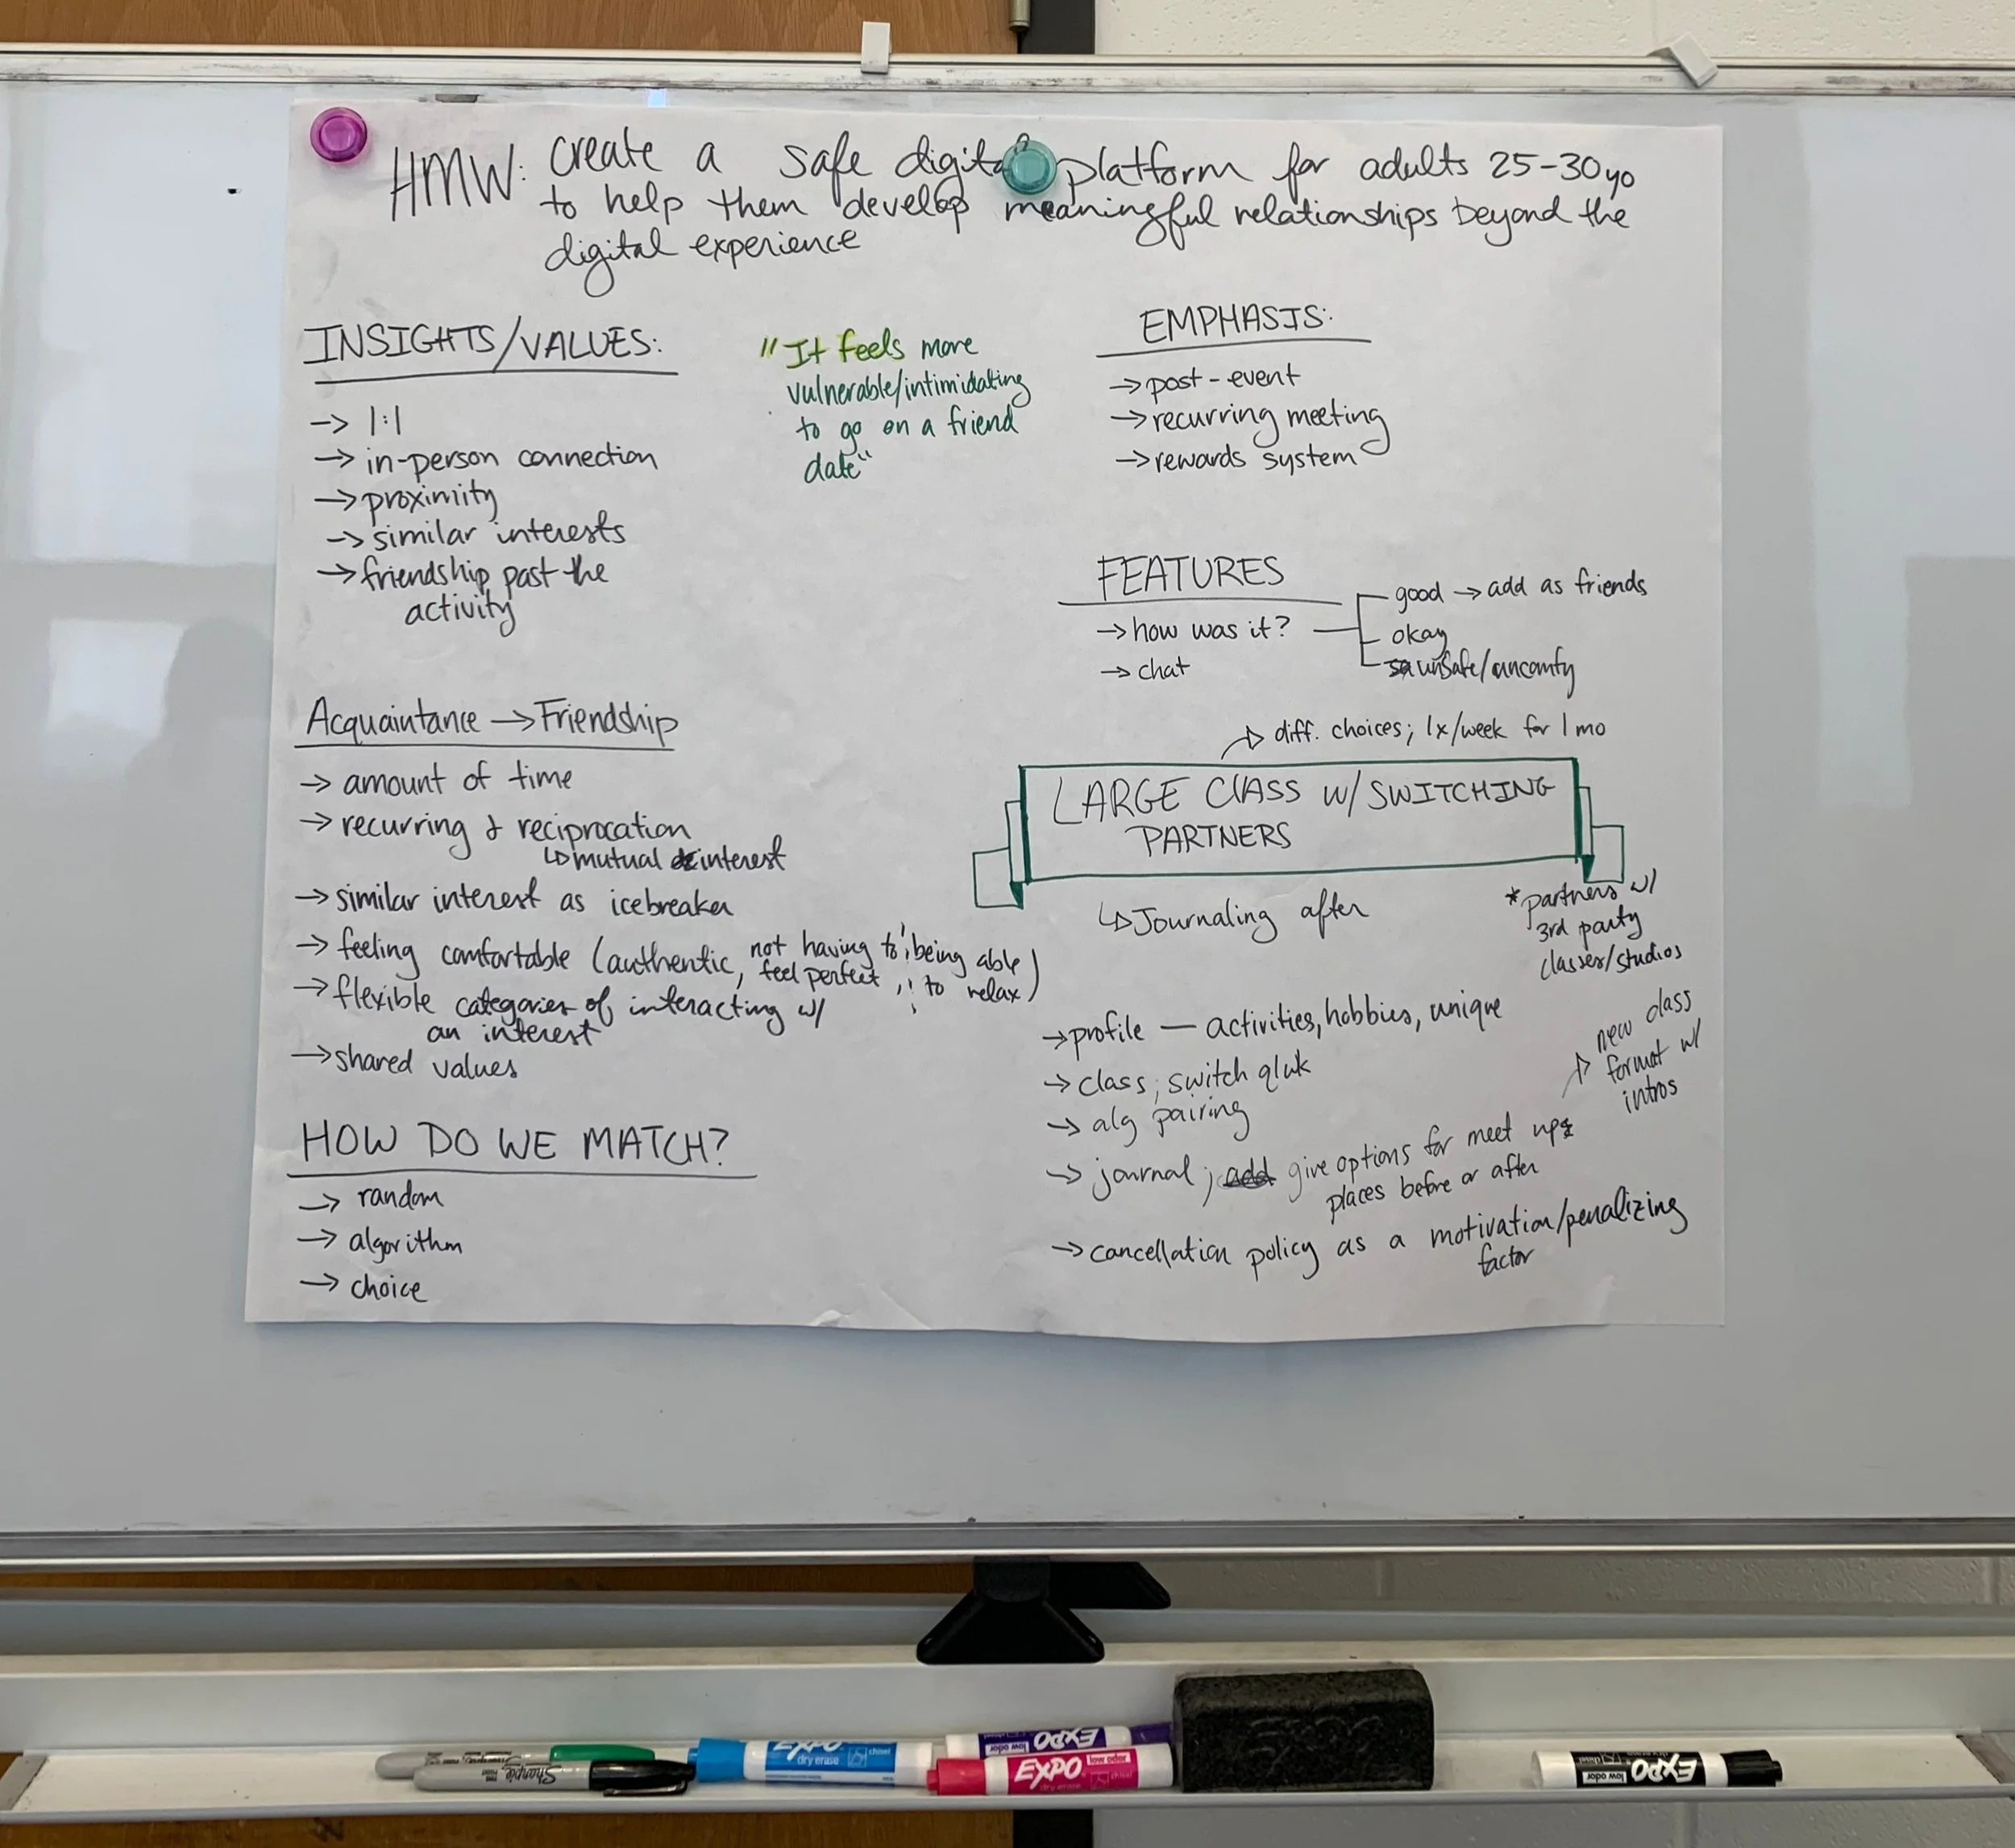 HMW: create a safe digital platform for adults 25-30yo
to help them develop meaningful relationships beyond the
digital experience
INSIGHTS/VALUES:
→ 1:1
→ in-person connection
→ proximity
→ similar interests
→ friendship past the
activity
"It feels more
vulnerable/intimidating
to go on a friend
date"
EMPHASIS:
→ post-event
→ recurring meeting
→ rewards system
FEATURES
→ how was it?
good → add as friends
okay
unsafe/uncomfy
→ chat
Acquaintance → Friendship
→ amount of time
→ recurring & reciprocation
↳ mutual interest
→ similar interest as icebreaker
→ feeling comfortable (authentic, not having to feel perfect, being able to relax)
→ flexible categories of interacting w/
an interest
→ shared values
HOW DO WE MATCH?
→ random
→ algorithm
→ choice
→ diff. choices; 1x/week for 1 mo
LARGE CLASS W/ SWITCHING
PARTNERS
↳ Journaling after
*partners w/
3rd party
classes/studios
→ profile — activities, hobbies, unique
→ class; switch
→ alg pairing
→ journal; add give options for meet ups
places before or after
→ new class
format w/
intros
→ cancellation policy as a motivation/penalizing
factor
Sharpie
EXPO
dry erase
chisel
EXPO
low odor
EXPO
low odor
dry erase
chisel
EXPO
low odor
chisel